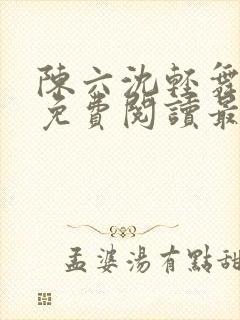 陳六沈輕舞
免費閱讀最
孟婆湯有點甜